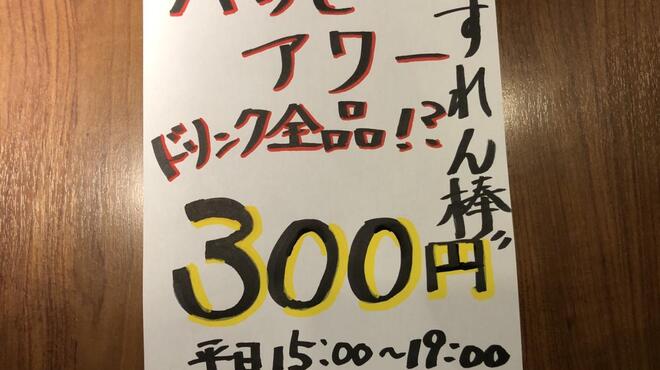 ハッピ
アワー
ドリンク全品!?
300円
平日15:00~19:00
すれん棒゛